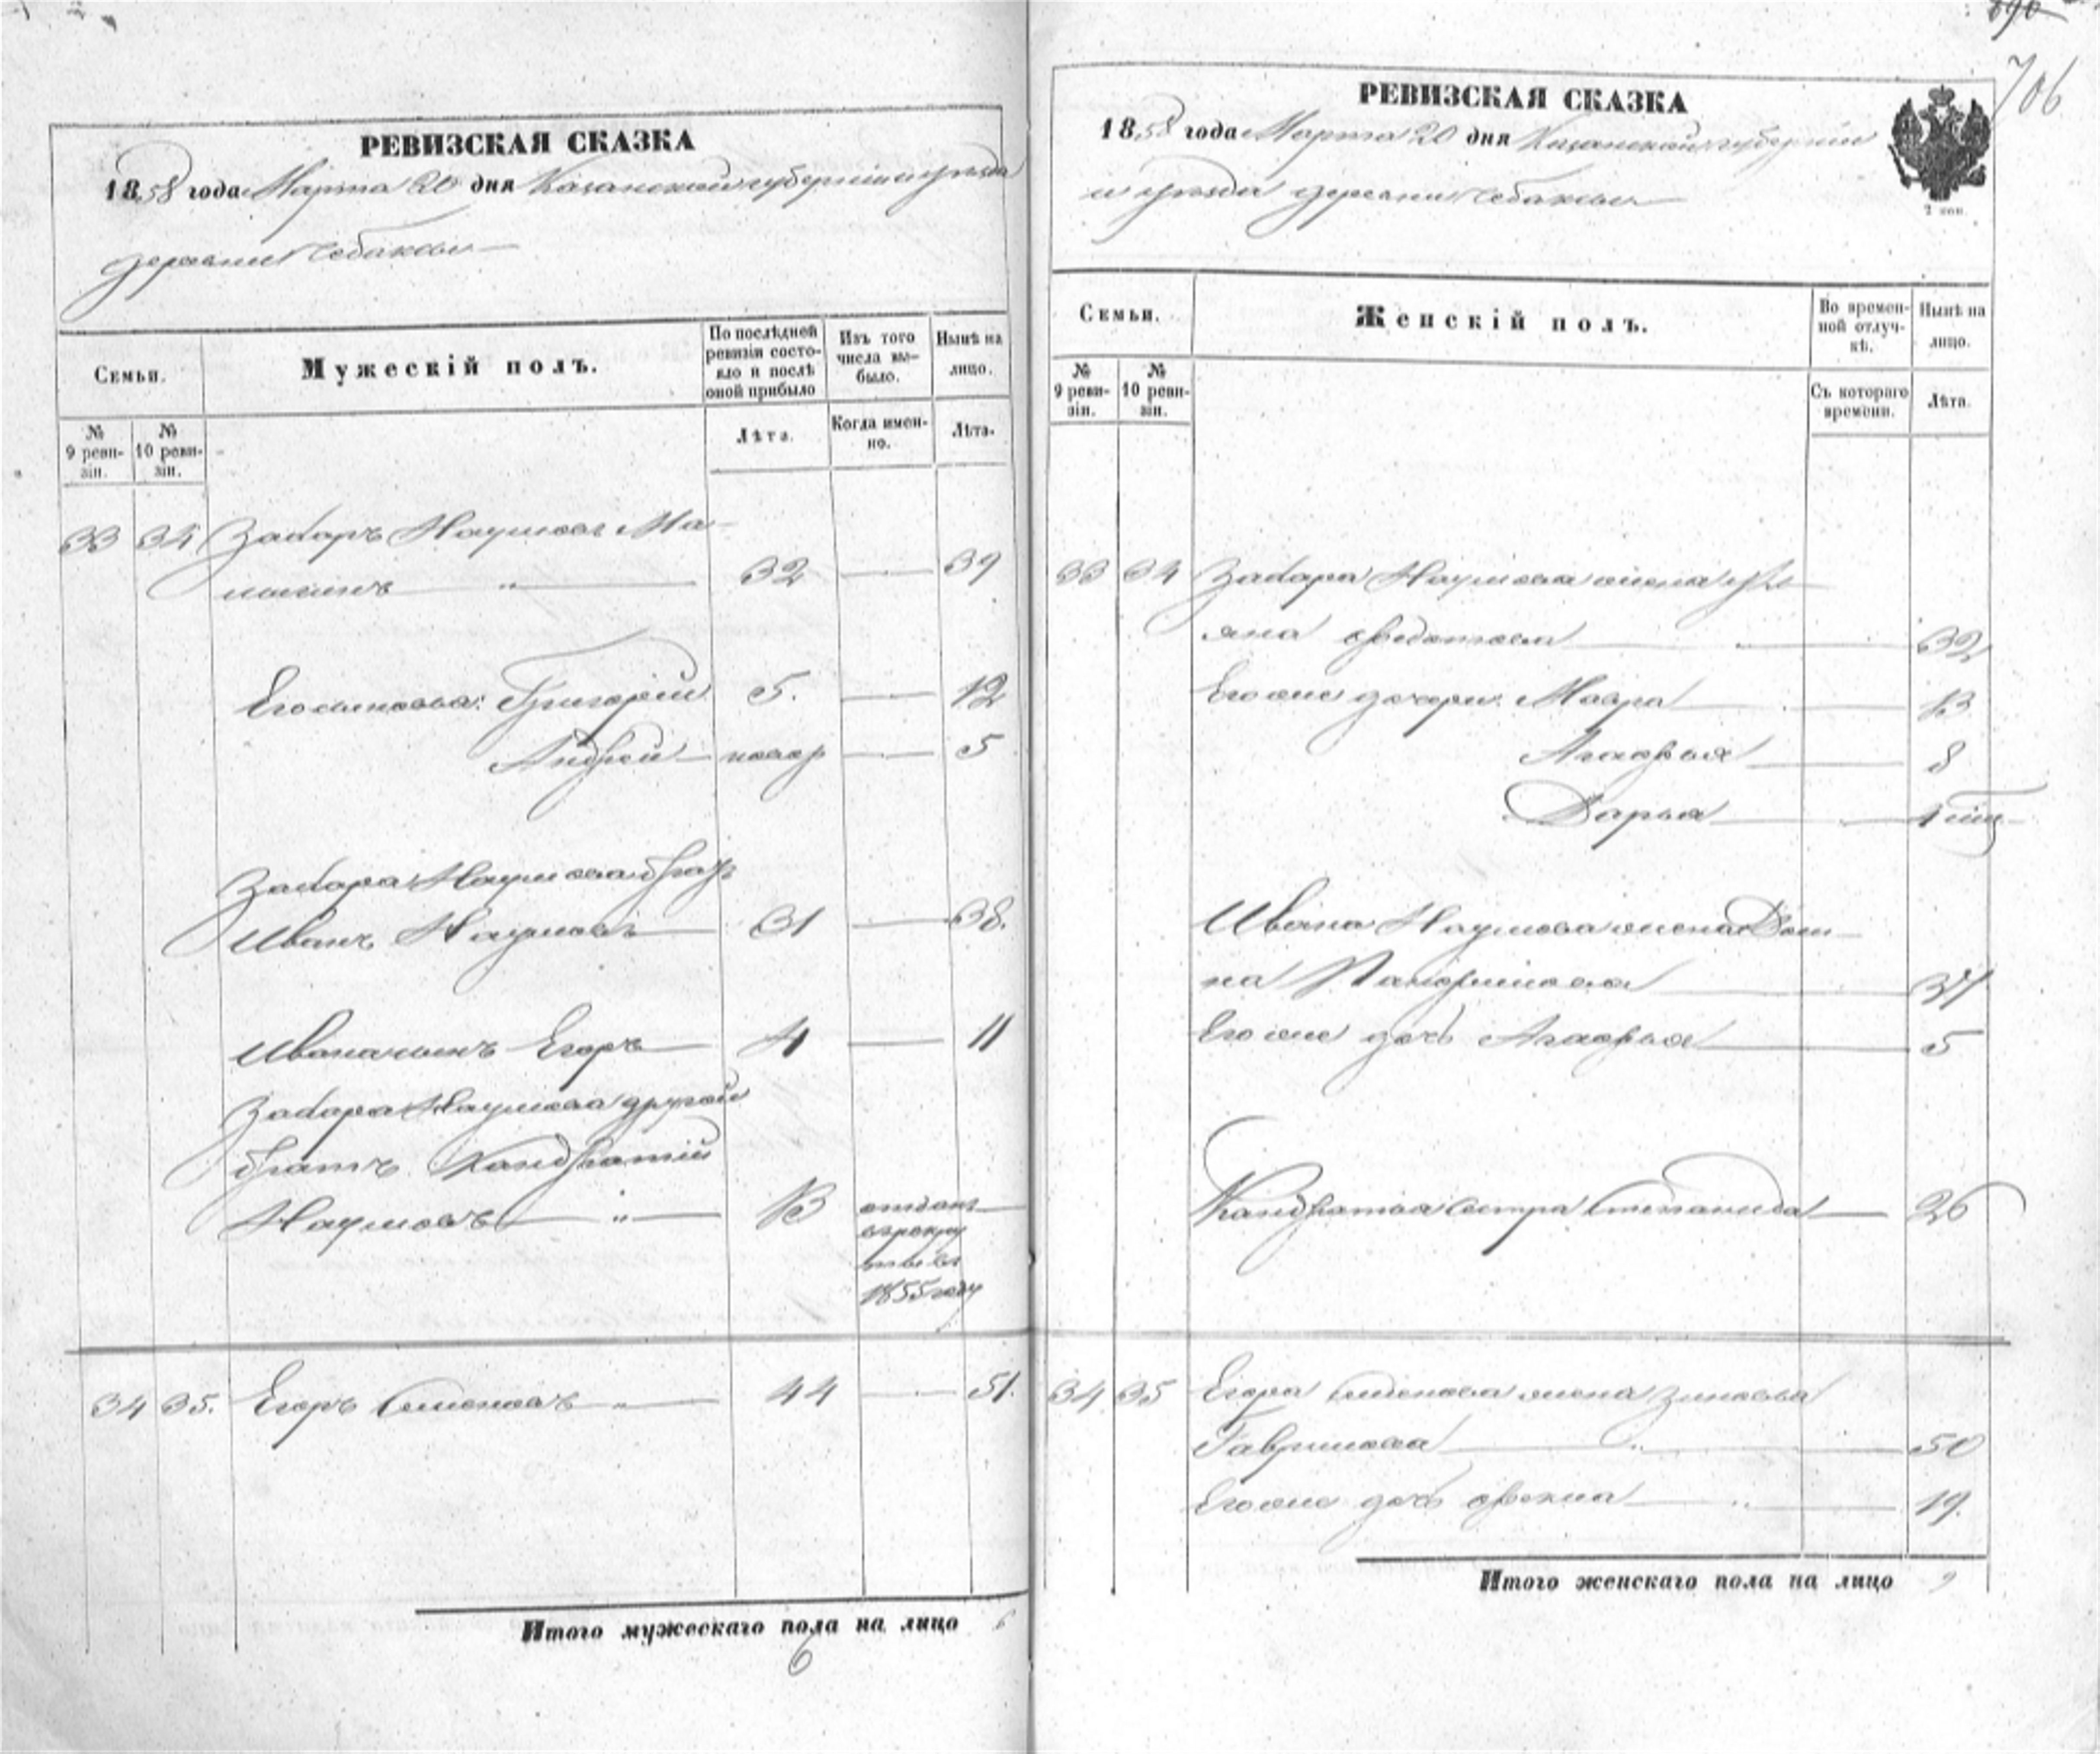 706
РЕВИЗСКАЯ СКАЗКА
1858 года Марта 20 дня Казанской губернии и уезда
деревни Чебаксы
Семьи.
Мужескій полъ.
По послѣдней ревизіи состояло и послѣ оной прибыло
Изъ того числа выбыло.
Нынѣ на лицо.
№ 9 ревизіи.
№ 10 ревизіи.
Лѣта.
Когда именно.
Лѣта.
33 34 Захаръ Наумовъ Ма-
32 — 39
Его сыновья: Григорій 5. — 12
Андрей — новор — 5
Захара Наумова братъ
Иванъ Наумовъ — 31 — 38.
Ивана сынъ Егоръ — 4 — 11
Захара Наумова другой
братъ Кандратій
Наумовъ — " — 13 отданъ
в рекру
ты въ
1855 году
34 35. Егоръ Семеновъ " — 44 — 51.
Итого мужескаго пола на лицо 6
6
РЕВИЗСКАЯ СКАЗКА
1858 года Марта 20 дня Казанской губерніи
и уезда деревни Чебаксы
2 коп.
Семьи.
Женскій полъ.
Во временной отлучкѣ.
Нынѣ на лицо.
№ 9 ревизіи.
№ 10 ревизіи.
Съ котораго времени.
Лѣта.
33 34 Захара Наумова жена Уль
яна Федотова — " — 32
Его же дочери Мавра — 13
Агафья — 8
Дарья — 1
Ивана Наумова жена Дом
на — 37
Его же дочь Агафья — 5
Кандратья сестра Степанида — 26
34 35 Егора Семенова жена Зиновья
Гаврилова — " — 50
Его же дочь Фекла — " — 19.
Итого женскаго пола на лицо 9